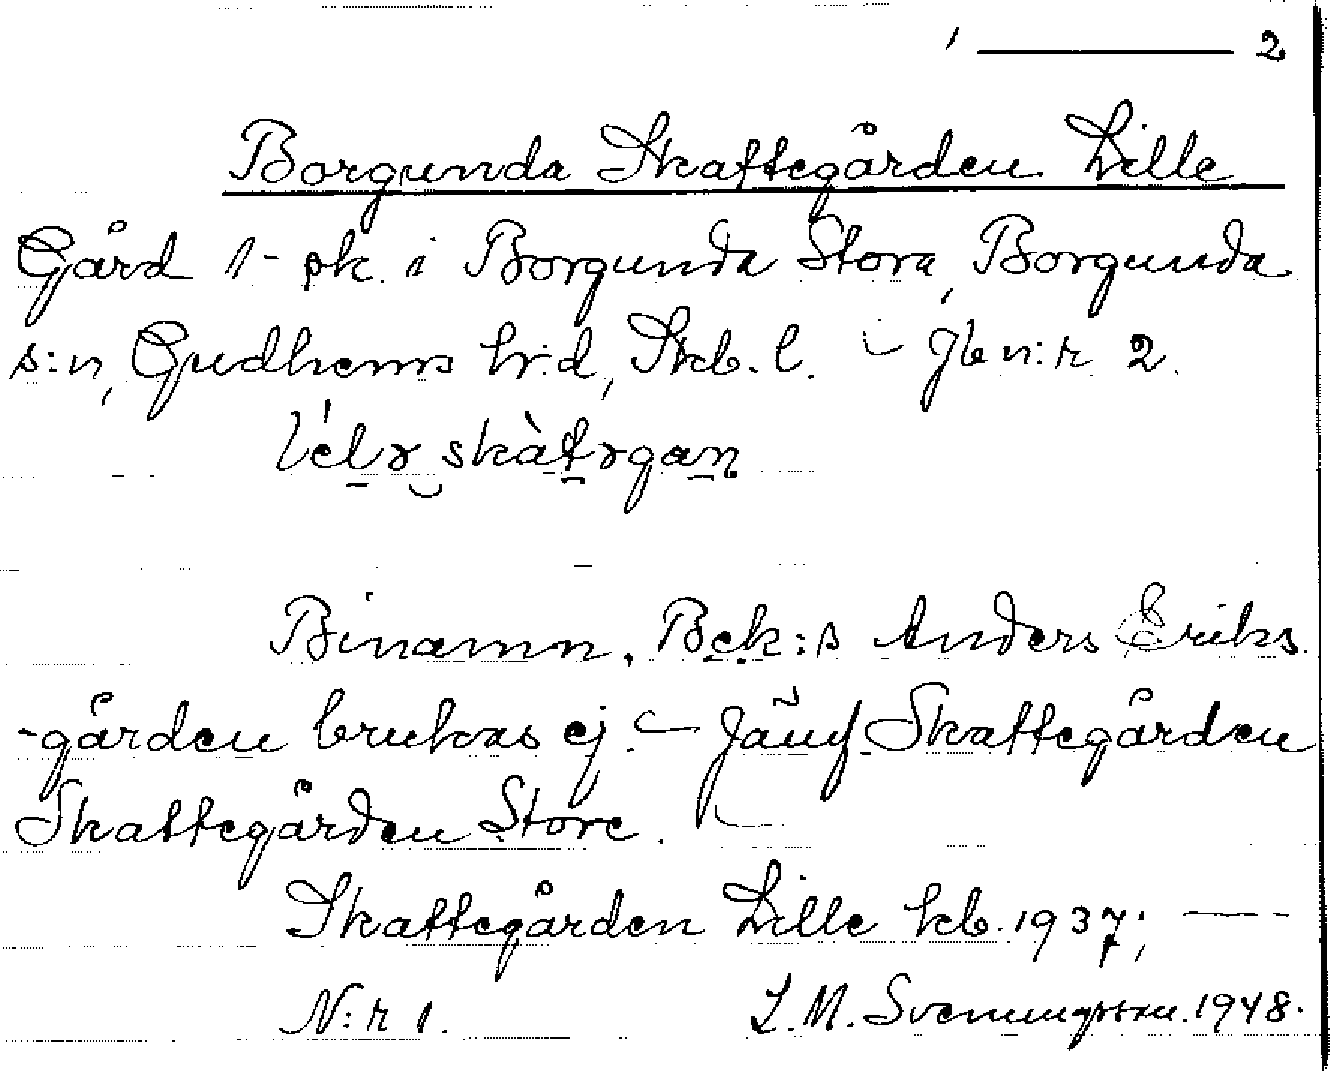 1 ——— 2
Borgunda Skattegården Lille
Gård 1- pk. i Borgunda Stora, Borgunda
s:n, Gudhems hr:d, Skb. l. – Jb n:r 2.
skàtɤgan̥
Binamn. Bek:s Anders Eriks-
-gården brukas ej. – Jämf. Skattegården
Skattegården Store.
Skattegården Lille kb. 1937; —
N:r 1. L. M. Svenungsson. 1948.